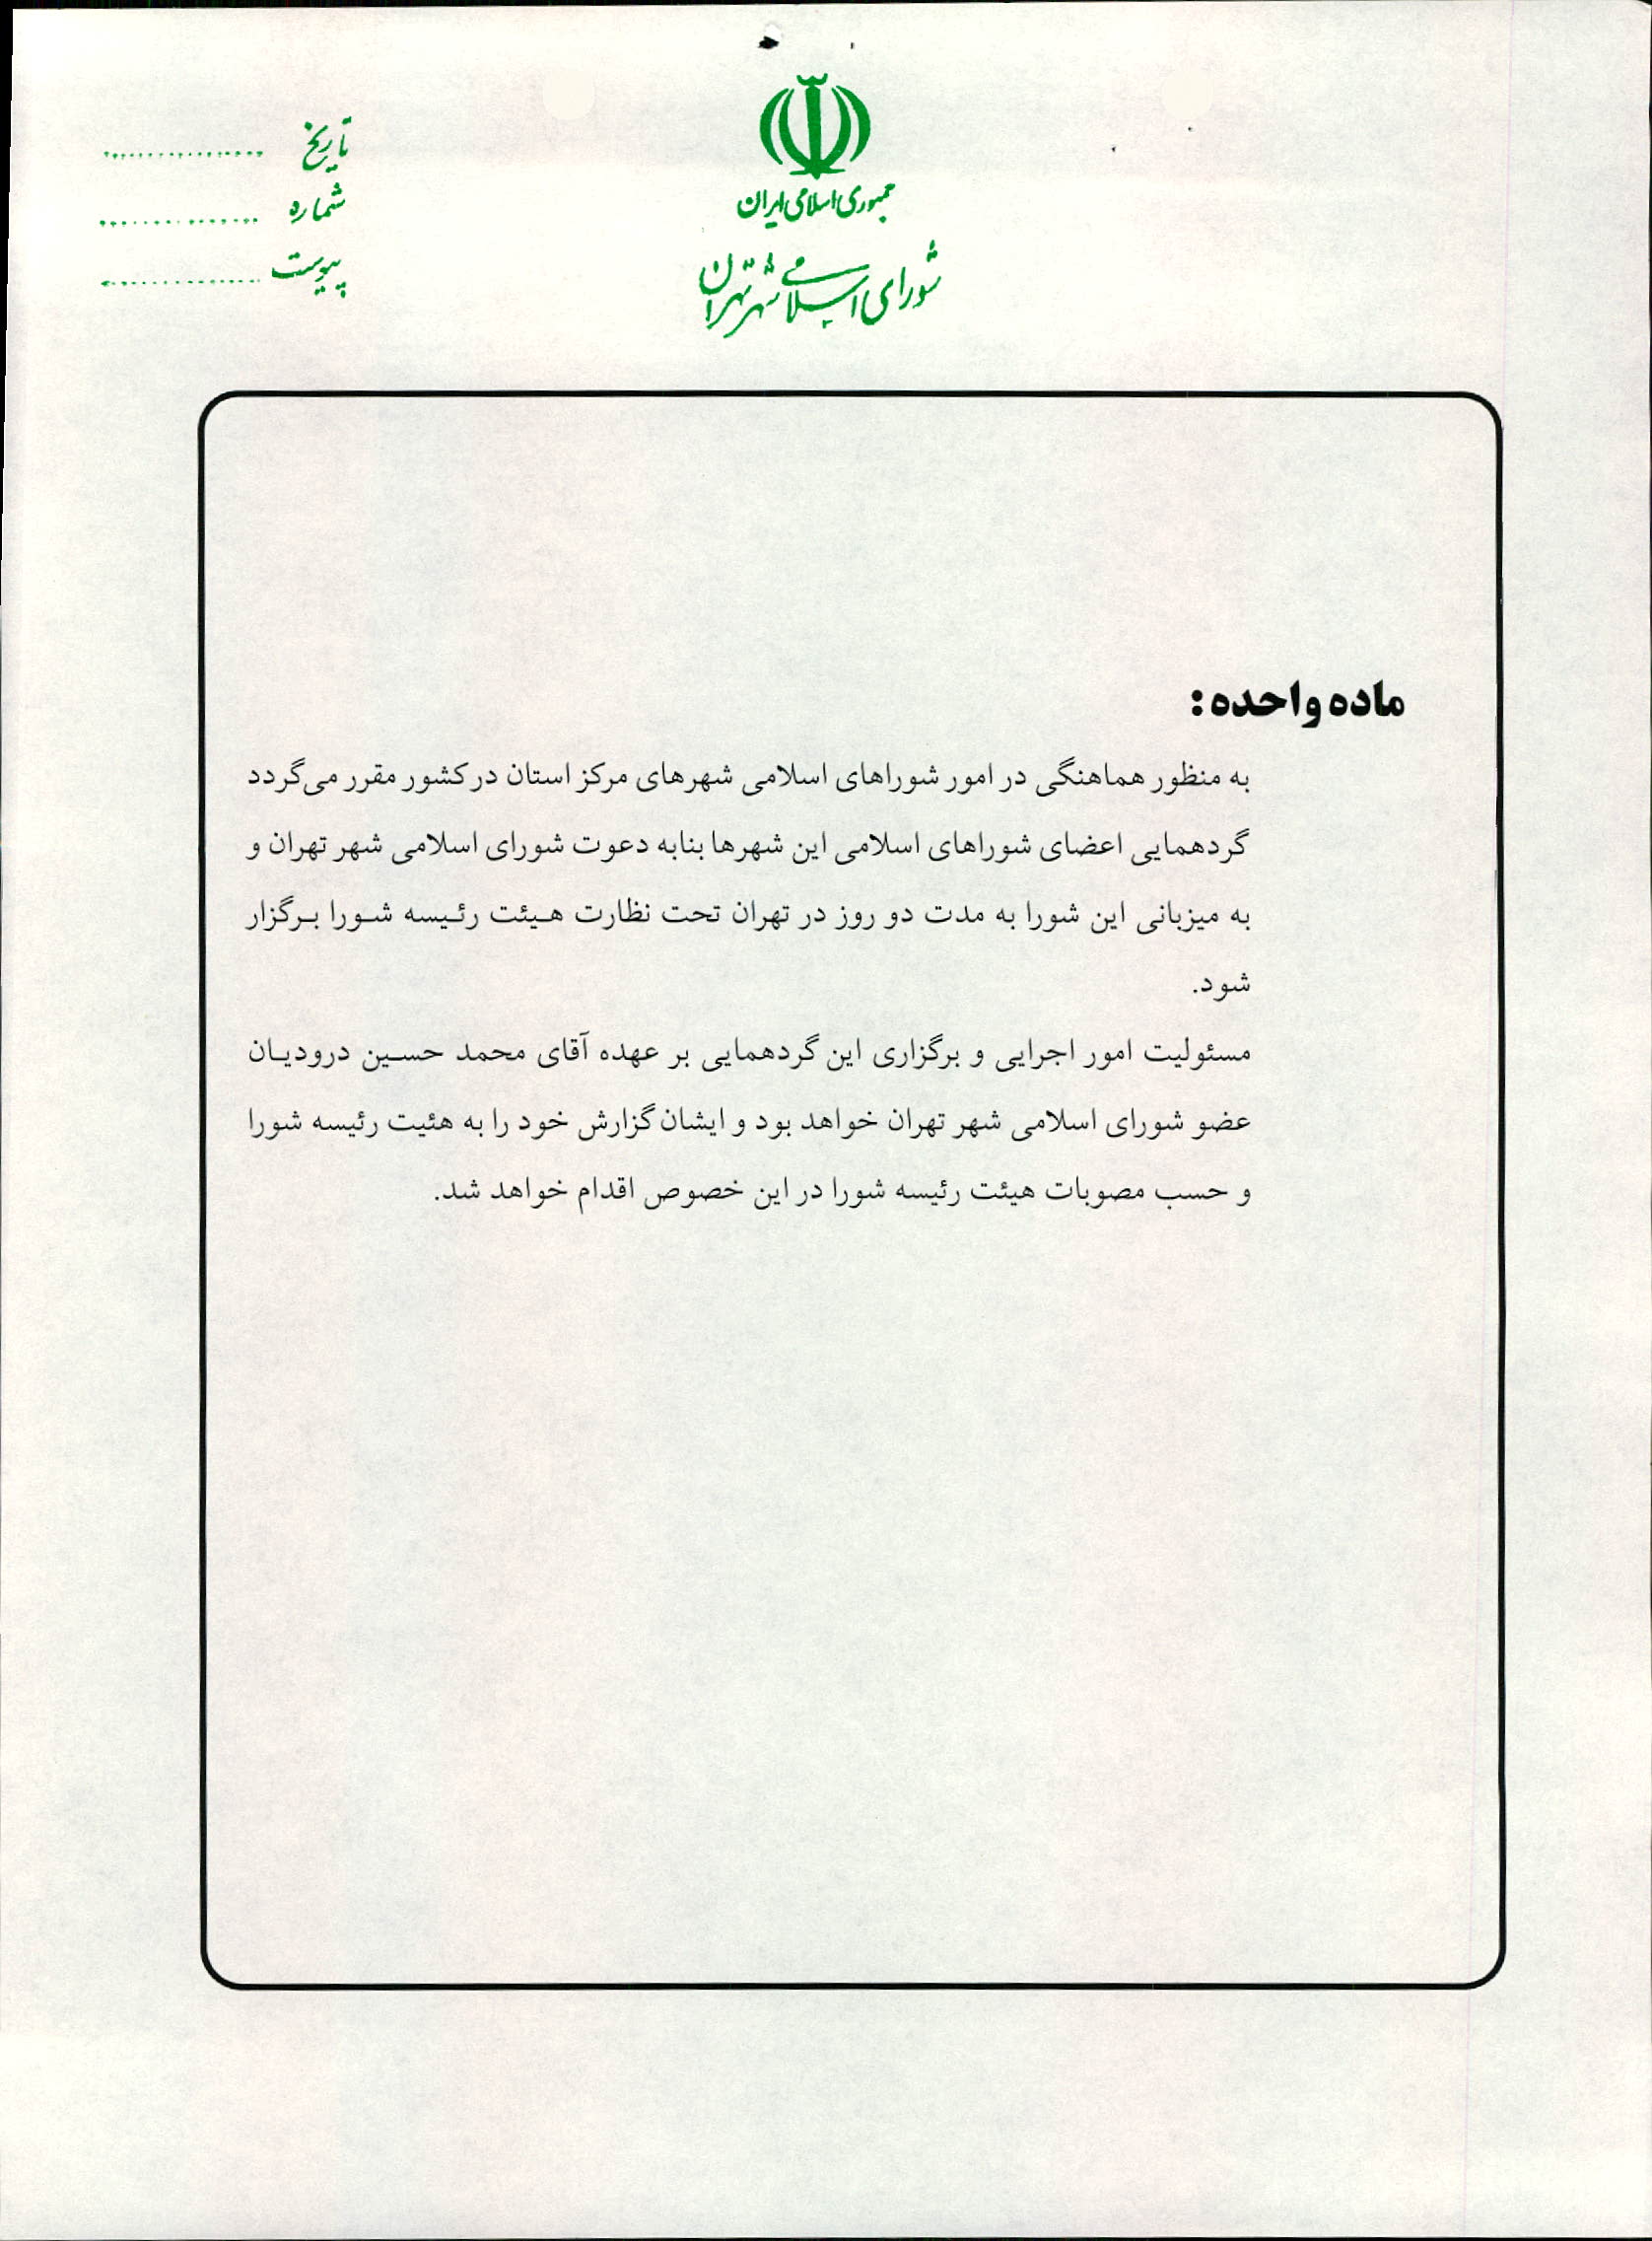 جمهوری اسلامی ایران
شورای اسلامی شهر تهران
تاریخ ................
شماره ................
پیوست ................
ماده واحده:
به منظور هماهنگی در امور شوراهای اسلامی شهرهای مرکز استان در کشور مقرر می‌گردد
گردهمایی اعضای شوراهای اسلامی این شهرها بنابه دعوت شورای اسلامی شهر تهران و
به میزبانی این شورا به مدت دو روز در تهران تحت نظارت هیئت رئیسه شورا برگزار
شود.
مسئولیت امور اجرایی و برگزاری این گردهمایی بر عهده آقای محمد حسین درودیان
عضو شورای اسلامی شهر تهران خواهد بود و ایشان گزارش خود را به هئیت رئیسه شورا
و حسب مصوبات هیئت رئیسه شورا در این خصوص اقدام خواهد شد.